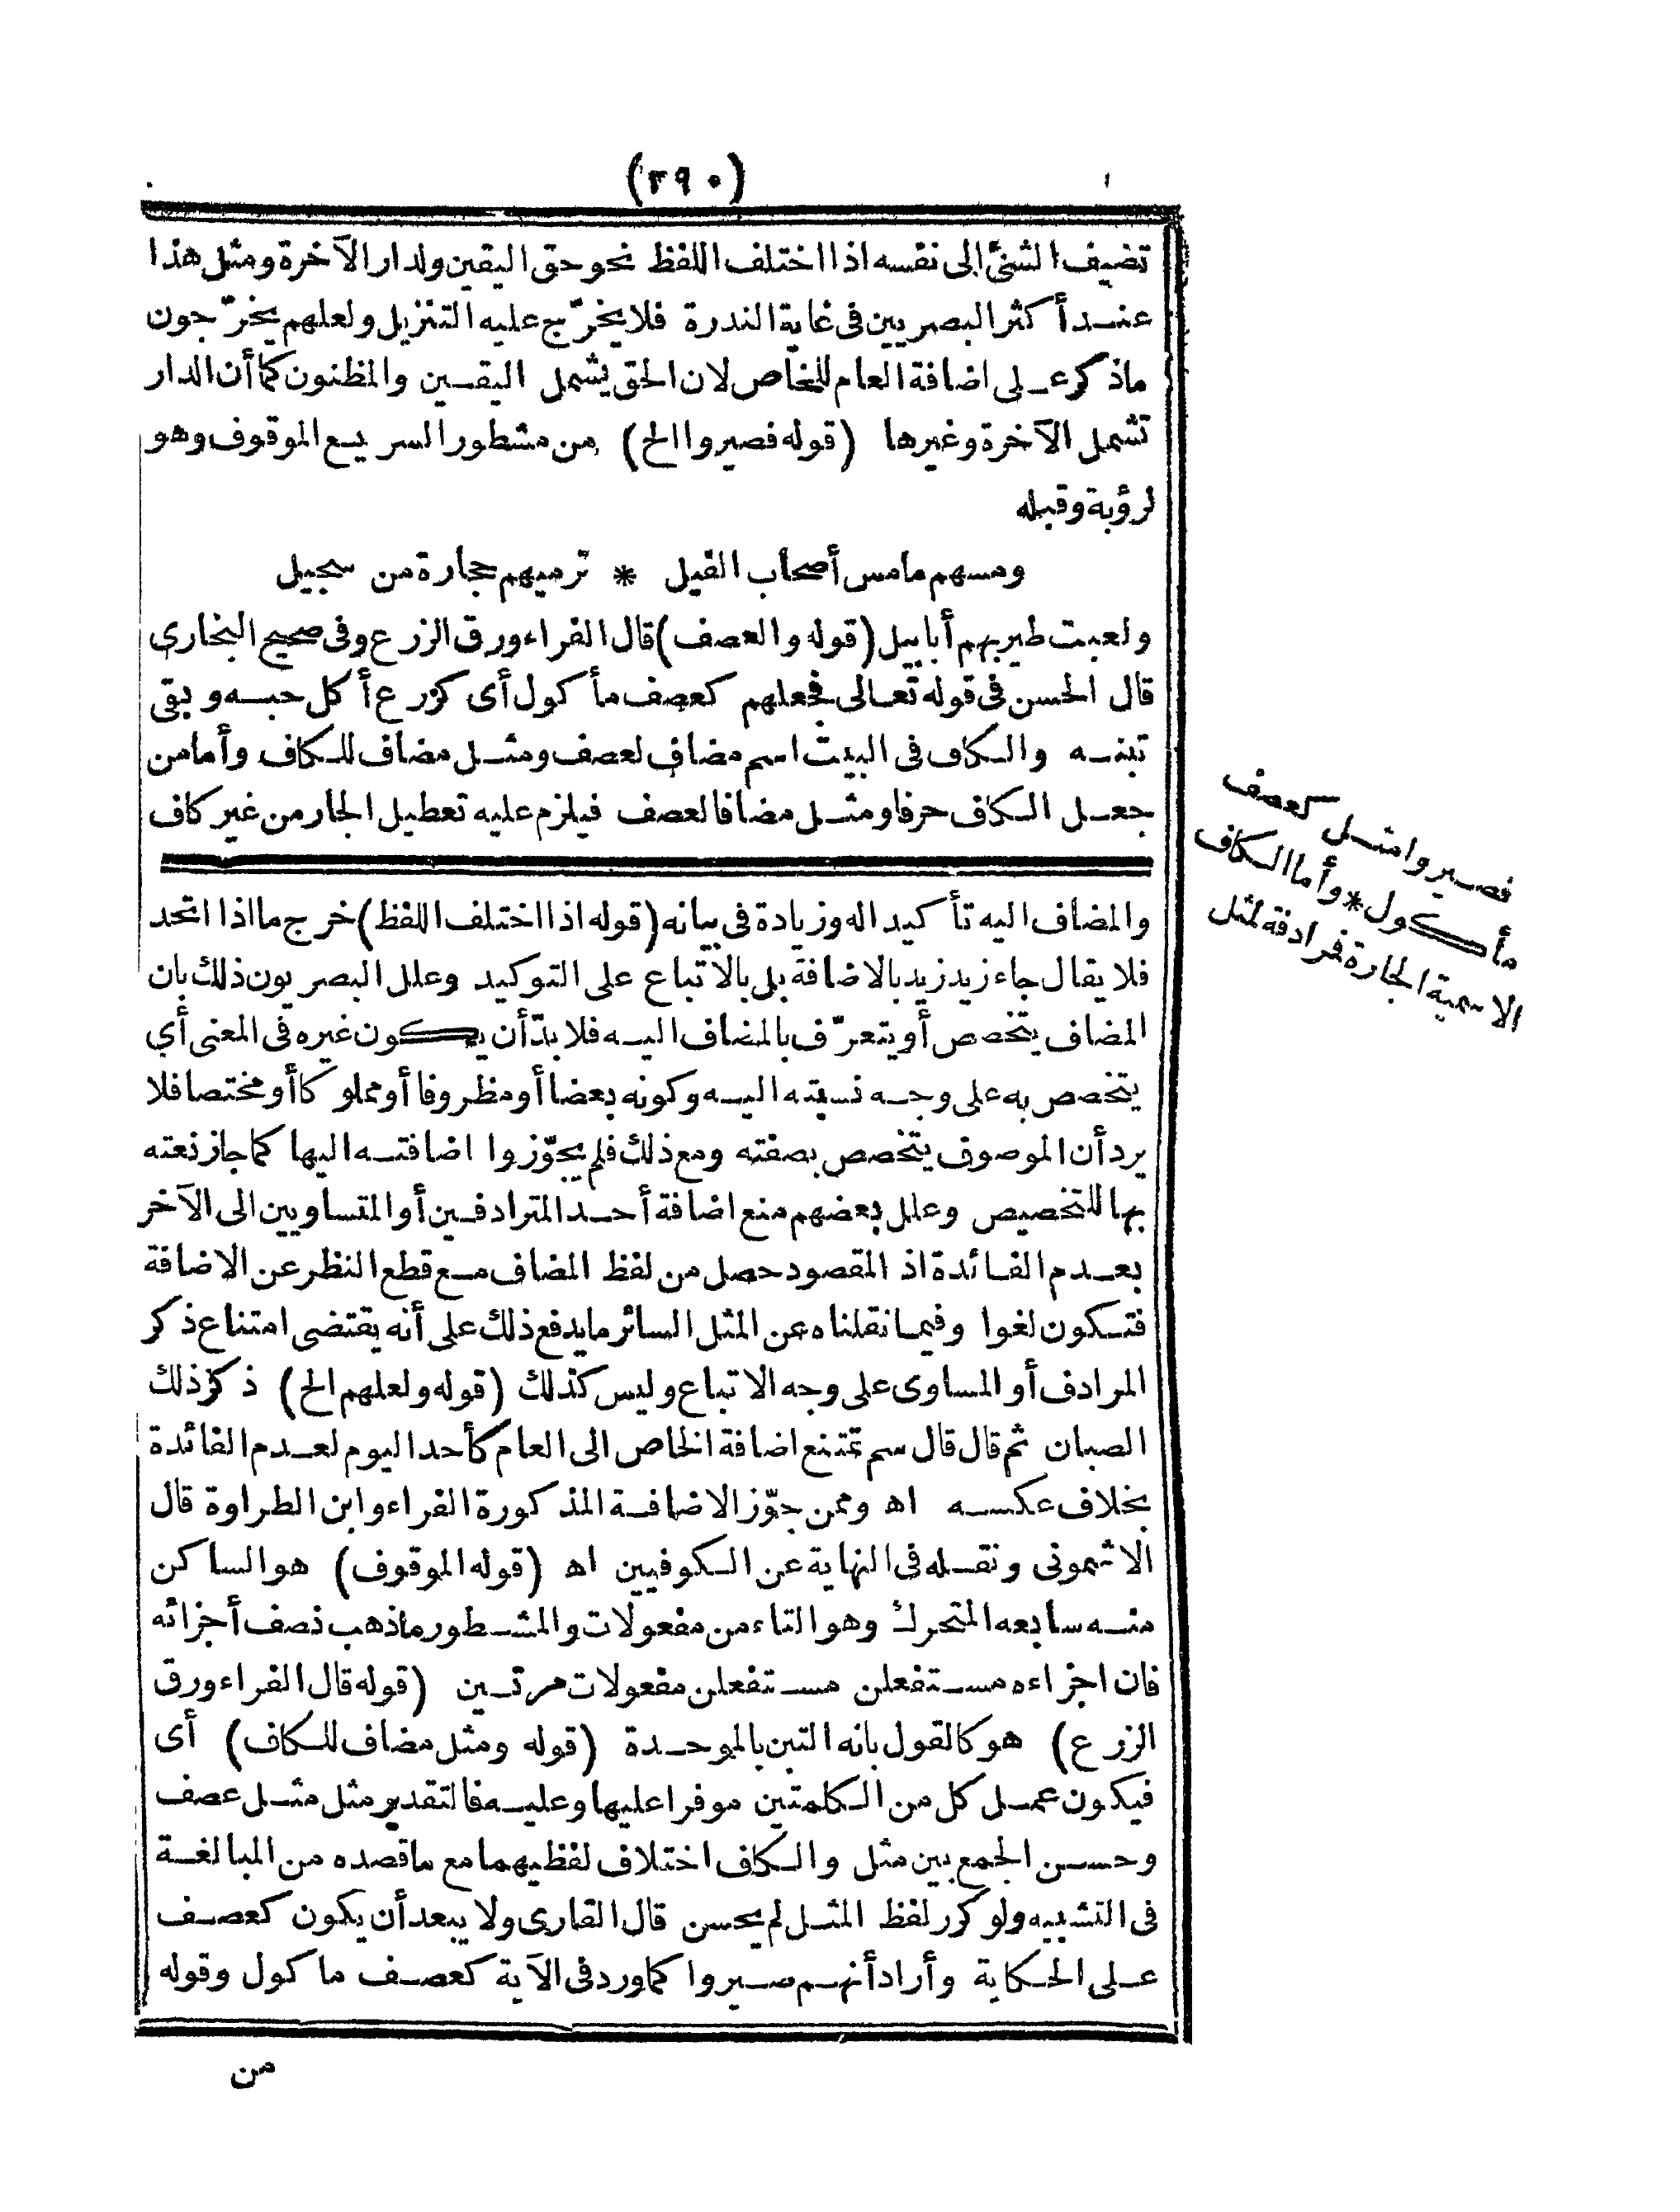 (٣٩٠)
تضيف الشئ الى نفسه اذا اختلف اللفظ نحو حق اليقين ولدار الآخرة ومثل هذا
عند أكثر البصريين فى غاية الندرة فلا يخرّج عليه التنزيل ولعلهم يخرّجون
ماذكر على اضافة العام للخاص لان الحق يشمل اليقين والمظنون كما أن الدار
تشمل الآخرة وغيرها (قوله فصيروا الخ) من مشطور السريع الموقوف وهو
لرؤبة وقبله
ومسهم مامس أصحاب الفيل * ترميهم حجارة من سجيل
ولعبت طير بهم أبابيل (قوله والعصف) قال الفراء ورق الزرع وفى صحيح البخارى
قال الحسن فى قوله تعالى فجعلهم كعصف مأكول أى كزرع أكل حبه وبقى
تبنه والكاف فى البيت اسم مضاف لعصف ومثل مضاف للكاف وأما من
جعل الكاف حرفا ومثل مضافا لعصف فيلزم عليه تعطيل الجار من غير كاف
فصيروا مثل كعصف
مأكول * وأما الكاف
الاسمية الجارة فمرادفة لمثل
والمضاف اليه تأكيد اله وزيادة فى بيانه (قوله اذا اختلف اللفظ) خرج ما اذا اتحد
فلا يقال جاء زيد زيد بالاضافة بل بالاتباع على التوكيد وعلل البصريون ذلك بان
المضاف يتخصص أو يتعرّف بالمضاف اليه فلا بدّ أن يكون غيره فى المعنى أي
يتخصص به على وجه نسبته اليه وكونه بعضا أو مظروفا أو مملوكا أو مختصا فلا
يرد أن الموصوف يتخصص بصفته ومع ذلك فلم يجوّزوا اضافته اليها كما جاز نعته
بها للتخصيص وعلل بعضهم منع اضافة أحد المترادفين أو المتساويين الى الآخر
بعدم الفائدة اذ المقصود حصل من لفظ المضاف مع قطع النظر عن الاضافة
فتكون لغوا وفيما نقلناه عن المثل السائر ما يدفع ذلك على أنه يقتضى امتناع ذكر
المرادف أو المساوى على وجه الاتباع وليس كذلك (قوله ولعلهم الخ) ذكر ذلك
الصبان ثم قال قال سم تمتنع اضافة الخاص الى العام كأحد اليوم لعدم الفائدة
بخلاف عكسه اه وممن جوّز الاضافة المذكورة الفراء وابن الطراوة قال
الاشمونى ونقله فى النهاية عن الكوفيين اه (قوله الموقوف) هو الساكن
منه سابعه المتحرك وهو التاء من مفعولات والمشطور ماذهب نصف أجزائه
فان اجزاءه مستفعلن مستفعلن مفعولات مرتين (قوله قال الفراء ورق
الزرع) هو كالقول بانه التبن بالموحدة (قوله ومثل مضاف للكاف) أى
فيكون عمل كل من الكلمتين موفرا عليها وعليه فالتقدير مثل مثل عصف
وحسن الجمع بين مثل والكاف اختلاف لفظيهما مع ماقصده من المبالغة
فى التشبيه ولو كرر لفظ المثل لم يحسن قال القارى ولا يبعد أن يكون كعصف
على الحكاية وأراد أنهم صيروا كما ورد فى الآية كعصف ماكول وقوله
من